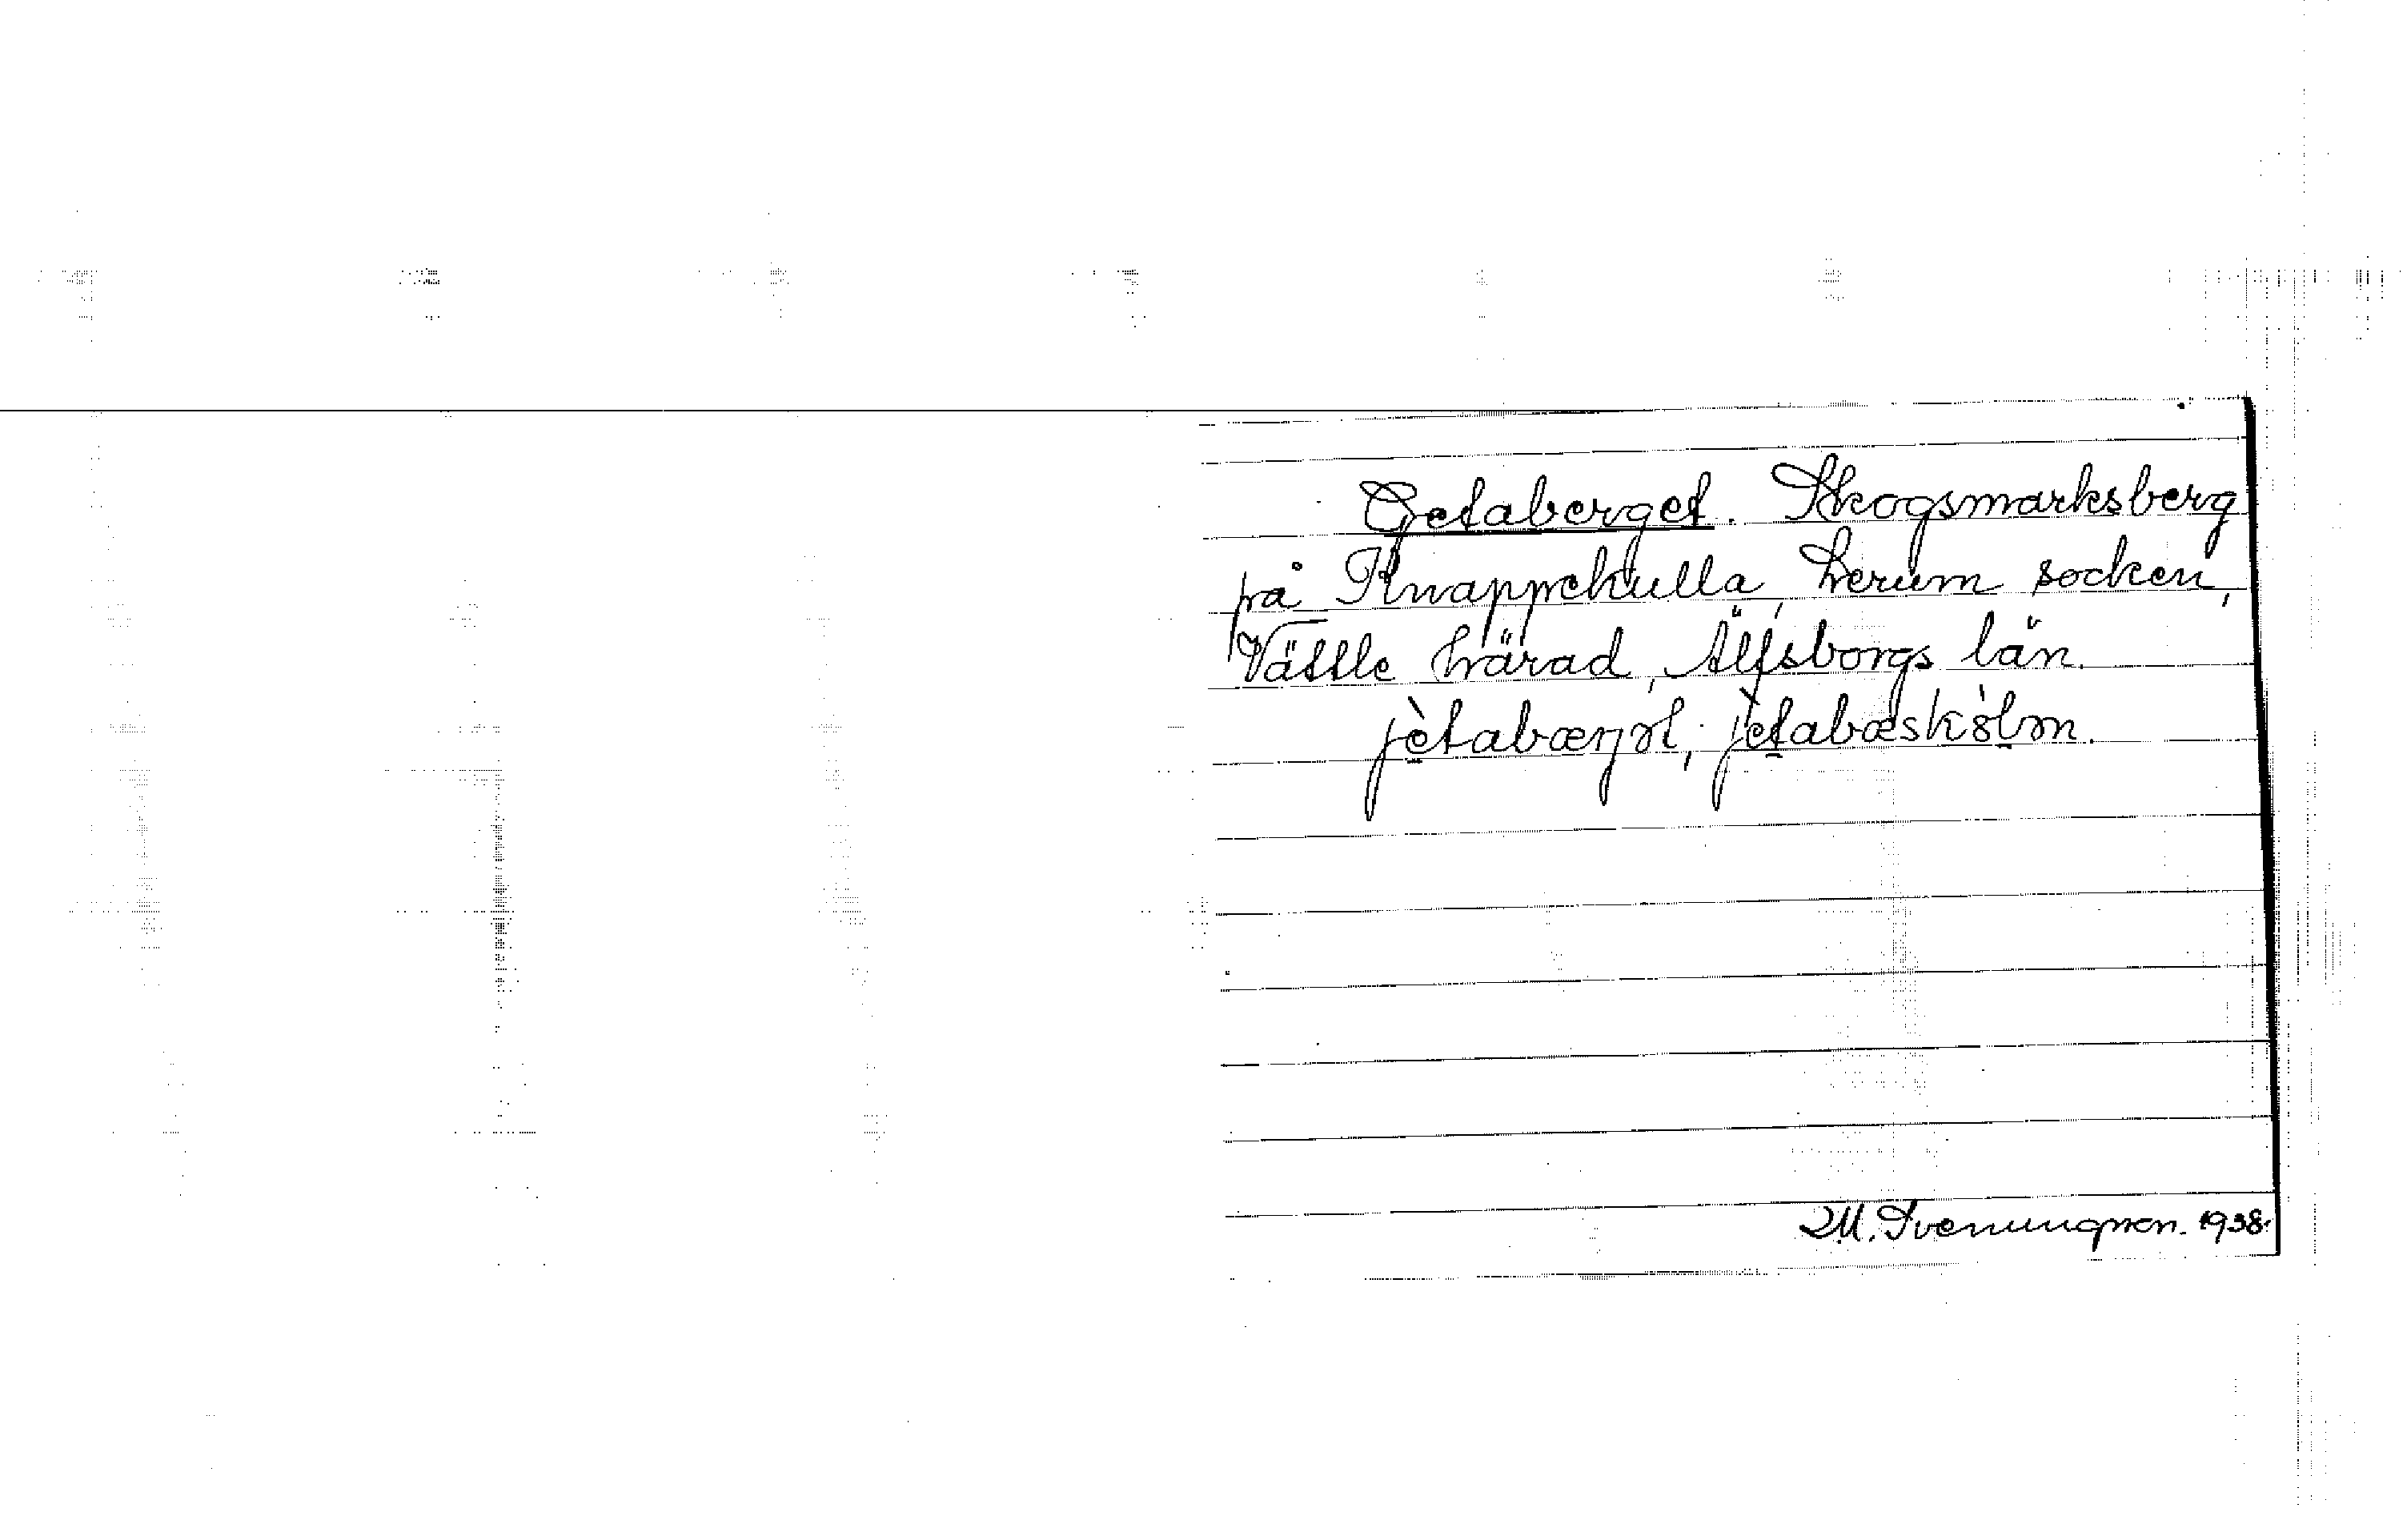 Getaberget. Skogsmarksberg
på Knappekulla, Lerum socken,
Vättle härad, Älfsborgs län.
jètabæŋət; jètabæskə̀lm.
M. Svenungson. 1938.